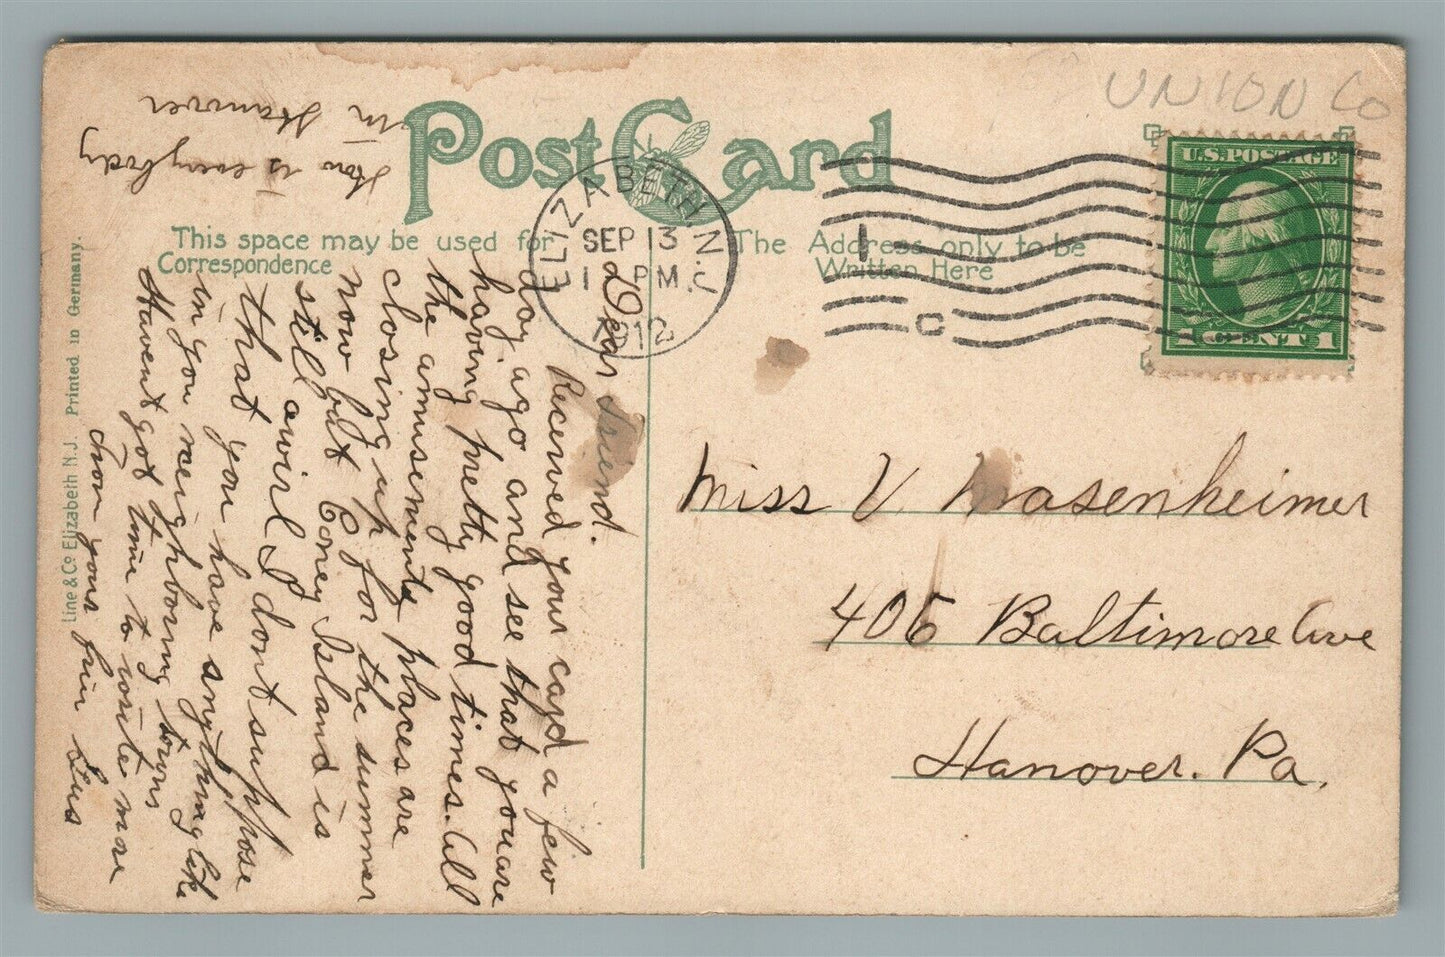 UNION Co
Post Card
This space may be used for
Correspondence
The Address only to be
Written Here
ELIZABETH N.J.
SEP 13
1 PM
1912
1
C
U.S. POSTAGE
1 CENT 1
Dear Friend.
Received your card a few
day ago and see that you are
having pretty good times. All
the amusements places are
closing up for the summer
now but Coney Island is
still awirl I dont suppose
that you have anything like
in you neighboring towns
Havent got time to write more
from your frin Gus
How is everybody
in Hanover
Miss V
406 Baltimore Ave
Hanover. Pa.
Line & Co Elizabeth N.J. Printed in Germany.